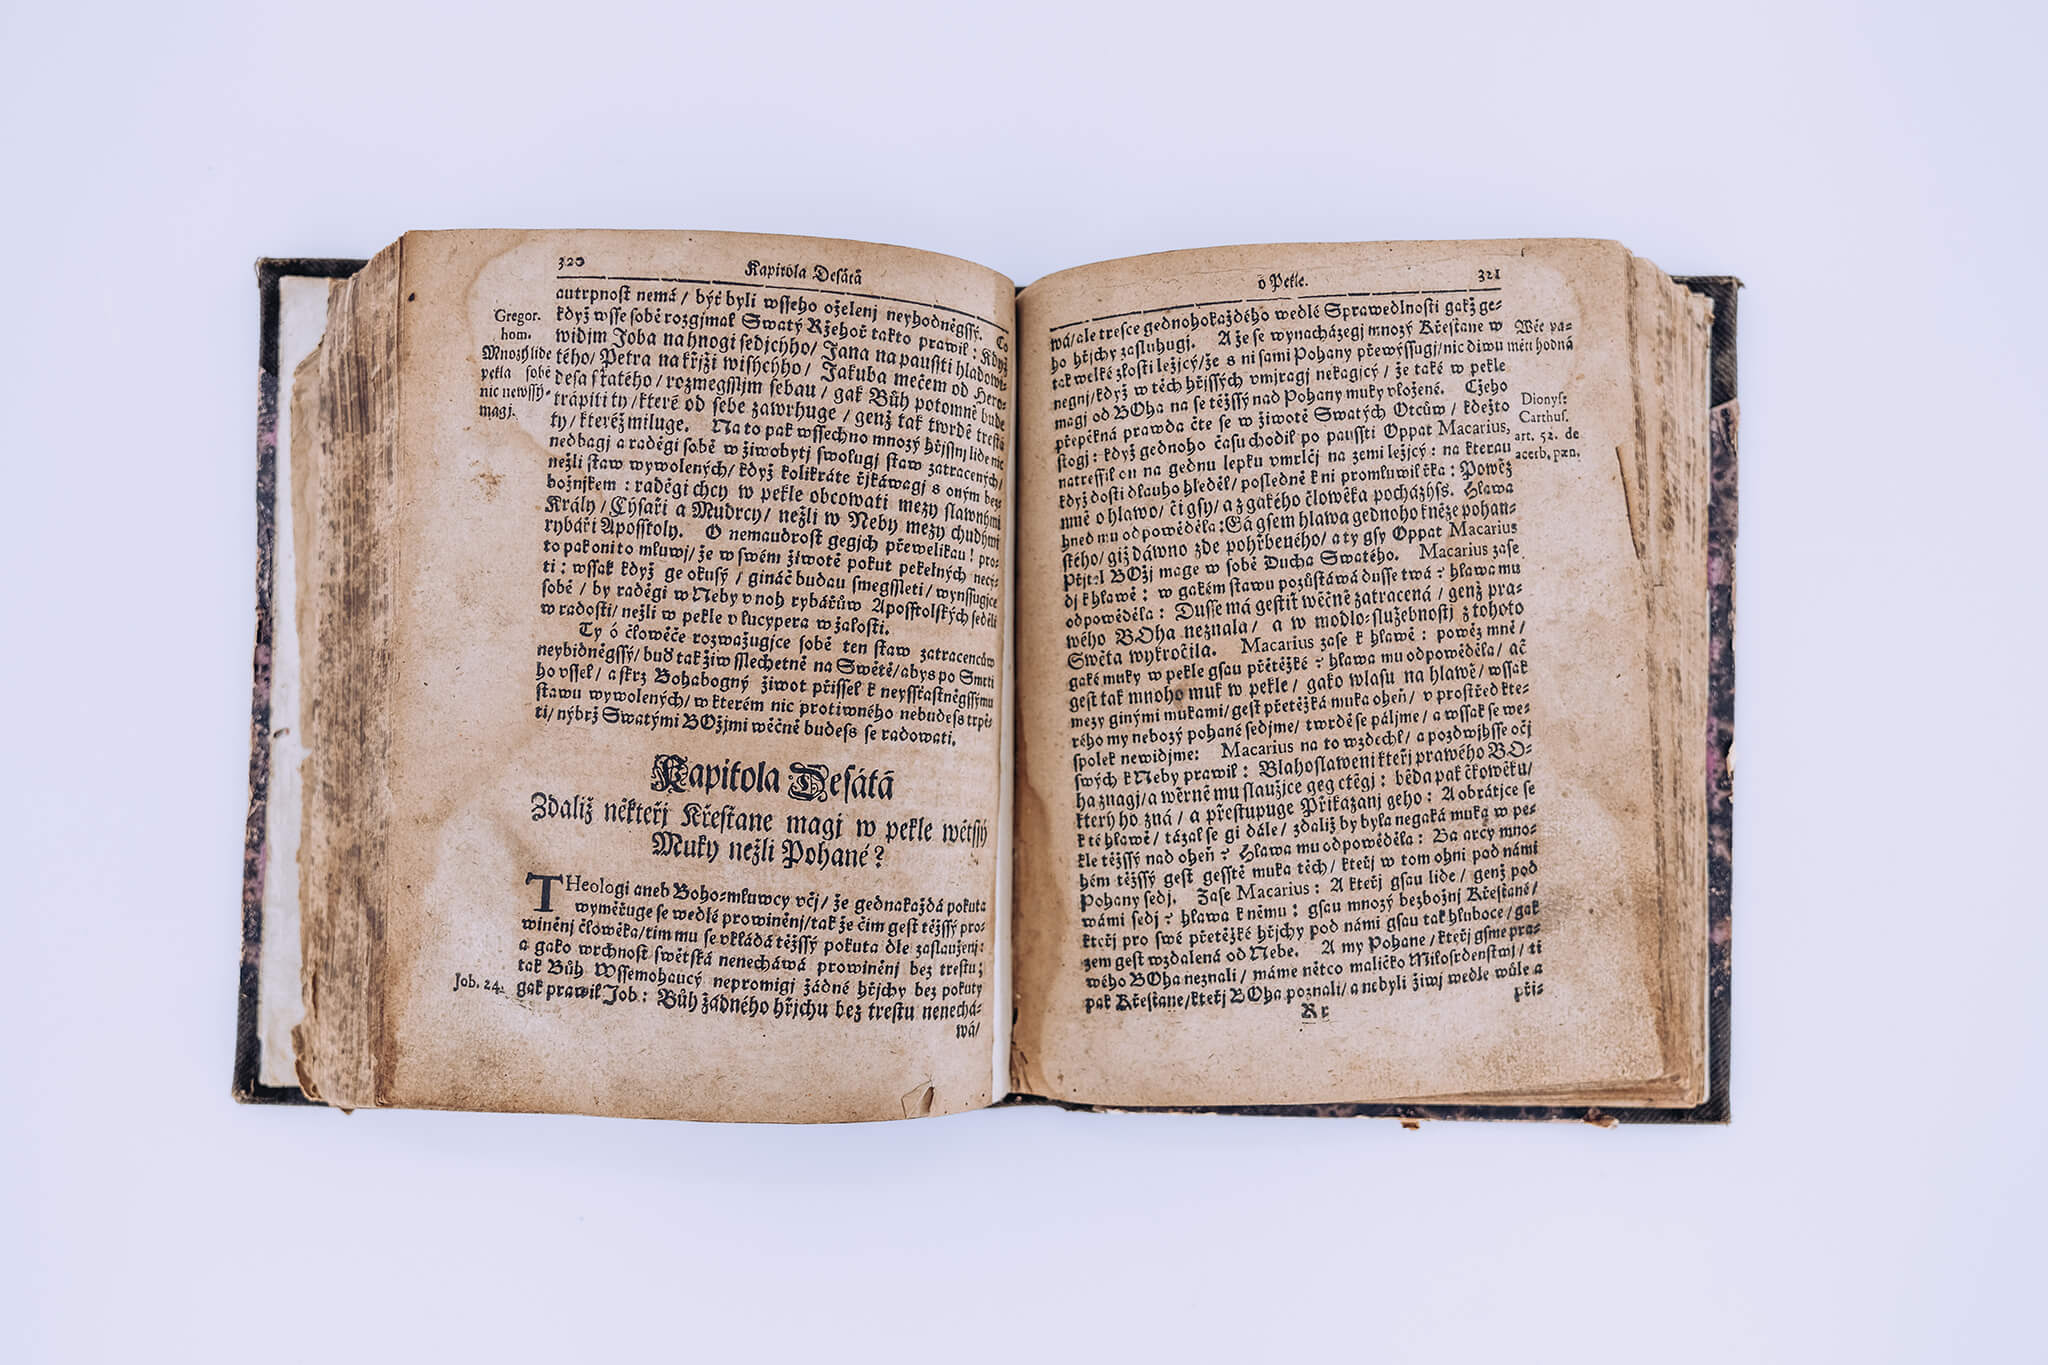 320
Kapitola Desátá
autrpnost nemá / byť byli wsseho oželenj neyhodněgssý. Co
když wsse sobě rozgjmal Swatý Ržehoř takto prawil : Když
widjm Joba na hnogi sedjcýho / Jana na paussti hladowi-
tého / Petra na křjži wisýcýho / Jakuba mečem od Hero-
desa statého / rozmegssljm sebau / gak Bůh potomně bude
trápiti ty / které od sebe zawrhuge / genž tak twrdě tresta
ty / kteréž miluge. Na to pak wssechno mnozý hřjssnj lide nic
nedbagj a raděgi sobě w žiwobytj swolugj staw zatracených /
nežli staw wywolených / když kolikráte řjkáwagj s oným bez-
božnjkem : raděgi chcy w pekle obcowati mezy slawnými
Krály / Cýsaři a Mudrcy / nežli w Neby mezy chudými
rybáři Aposstoly. O nemaudrost gegjch přewelikau ! pro-
to pak oni to mluwj / že w swém žiwotě pokut pekelných necý-
ti : wssak když ge okusý / gináč budau smegssleti / wynssugjce
sobě / by raděgi w Neby v noh rybářůw Aposstolských seděli
w radosti / nežli w pekle v lucypera w žalosti.
Ty ó člowěče rozwažugjce sobě ten staw zatracencůw
neybjdněgssý / buď tak žiw sslechetně na Swětě / abys po Smrti
ho vssel / a skrz Bohabogný žiwot přissel k neyssťastněgssýmu
stawu wywolených / w kterém nic protiwného nebudess trpě-
ti / nýbrž Swatými BOžjmi wěčně budess se radowati.
Gregor.
hom.
Mnozý lide
pekla sobě
nic newssý-
magj.
Kapitola Desátá
Zdaliž někteřj Křestane magj w pekle wětssý
Muky nežli Pohané ?
THeologi aneb Boho-mluwcy včj / že gednakaždá pokuta
wyměřuge se wedlé prowiněnj / tak že čim gest těžssý pro-
winěnj člowěka / tim mu se vkládá těžssý pokuta dle zaslauženj :
a gako wrchnost swětská nenecháwá prowiněnj bez trestu ;
tak Bůh Wssemohaucý nepromigj žádné hřjchy bez pokuty
gak prawil Job : Bůh žádného hřjchu bez trestu nenechá-
wá /
Job. 24.
o Pekle.
321
wá / ale tresce gednohokaždého wedlé Sprawedlnosti gakž ge-
ho hřjchy zasluhugj. A že se wynacházegj mnozý Křestane w
tak welké zlosti ležjcý / že s ni sami Pohany přewýssugj / nic diwu
negnj / když w těch hřjssých vmjragj nekagjcý / že také w pekle
magj od BOha na se těžssý nad Pohany muky vložené. Cžeho
přepěkná prawda čte se w žiwotě Swatých Otcůw / kdežto
stogj : když gednoho času chodil po paussti Oppat Macarius,
natreffil on na gednu lepku vmrlčj na zemi ležjcý : na kterau
když dosti dlauho hleděl / posledně k ni promluwil řka : Powěz
mně o hlawo / či gsy / a z gakého člowěka pocházýss. Hlawa
hned mu odpowěděla : Gá gsem hlawa gednoho kněze pohan-
ského / giž dáwno zde pohřbeného / a ty gsy Oppat Macarius
Přjtel BOžj mage w sobě Ducha Swatého. Macarius zase
dj k hlawě : w gakém stawu pozůstáwá dusse twá ? hlawa mu
odpowěděla : Dusse má gestiť wěčně zatracená / genž pra-
wého BOha neznala / a w modlo-služebnostj z tohoto
Swěta wykročila. Macarius zase k hlawě : powěz mně /
gaké muky w pekle gsau přetěžké ? hlawa mu odpowěděla / ač
gest tak mnoho muk w pekle / gako wlasu na hlawě / wssak
mezy ginými mukami / gest přetěžká muka oheň / v prostřed kte-
rého my nebozý pohané sedjme / twrdě se páljme / a wssak se we-
spolek newidjme : Macarius na to wzdechl / a pozdwjhsse očj
swých k Neby prawil : Blahoslaweni kteřj prawého BO-
ha znagj / a wěrně mu slaužjce geg ctěgj : běda pak čłowěku /
který ho zná / a přestupuge Přikázanj geho : A obrátjce se
k té hlawě / tázal se gi dále / zdaliž by byla negaká muka w pe-
kle těžssý nad oheň ? Hlawa mu odpowěděla : Ba arcy mno-
hém těžssý gest gesstě muka těch / kteřj w tom ohni pod námi
Pohany sedj. Zase Macarius : A kteřj gsau lide / genž pod
wámi sedj ? hlawa k němu : gsau mnozý bezbožnj Křestané /
kteřj pro swé přetěžké hřjchy pod námi gsau tak hluboce / gak
zem gest wzdalená od Nebe. A my Pohane / kteřj gsme pra-
wého BOha neznali / máme nětco maličko Milosrdenstwj / ti
pak Křestane / kteřj BOha poznali / a nebyli žiwj wedle wůle a
Rr
při-
Wěc pa-
měti hodná
Dionys:
Carthus.
art. 52. de
acerb. pæn.